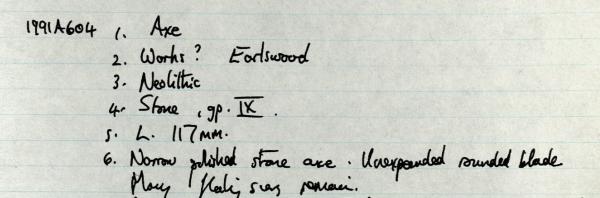 1991A604 1. Axe
2. Works? Earlswood
3. Neolithic
4. Stone, gp. IX.
5. L. 117mm.
6. Narrow polished stone axe. Unexpanded rounded blade
Many flaking scars remain.